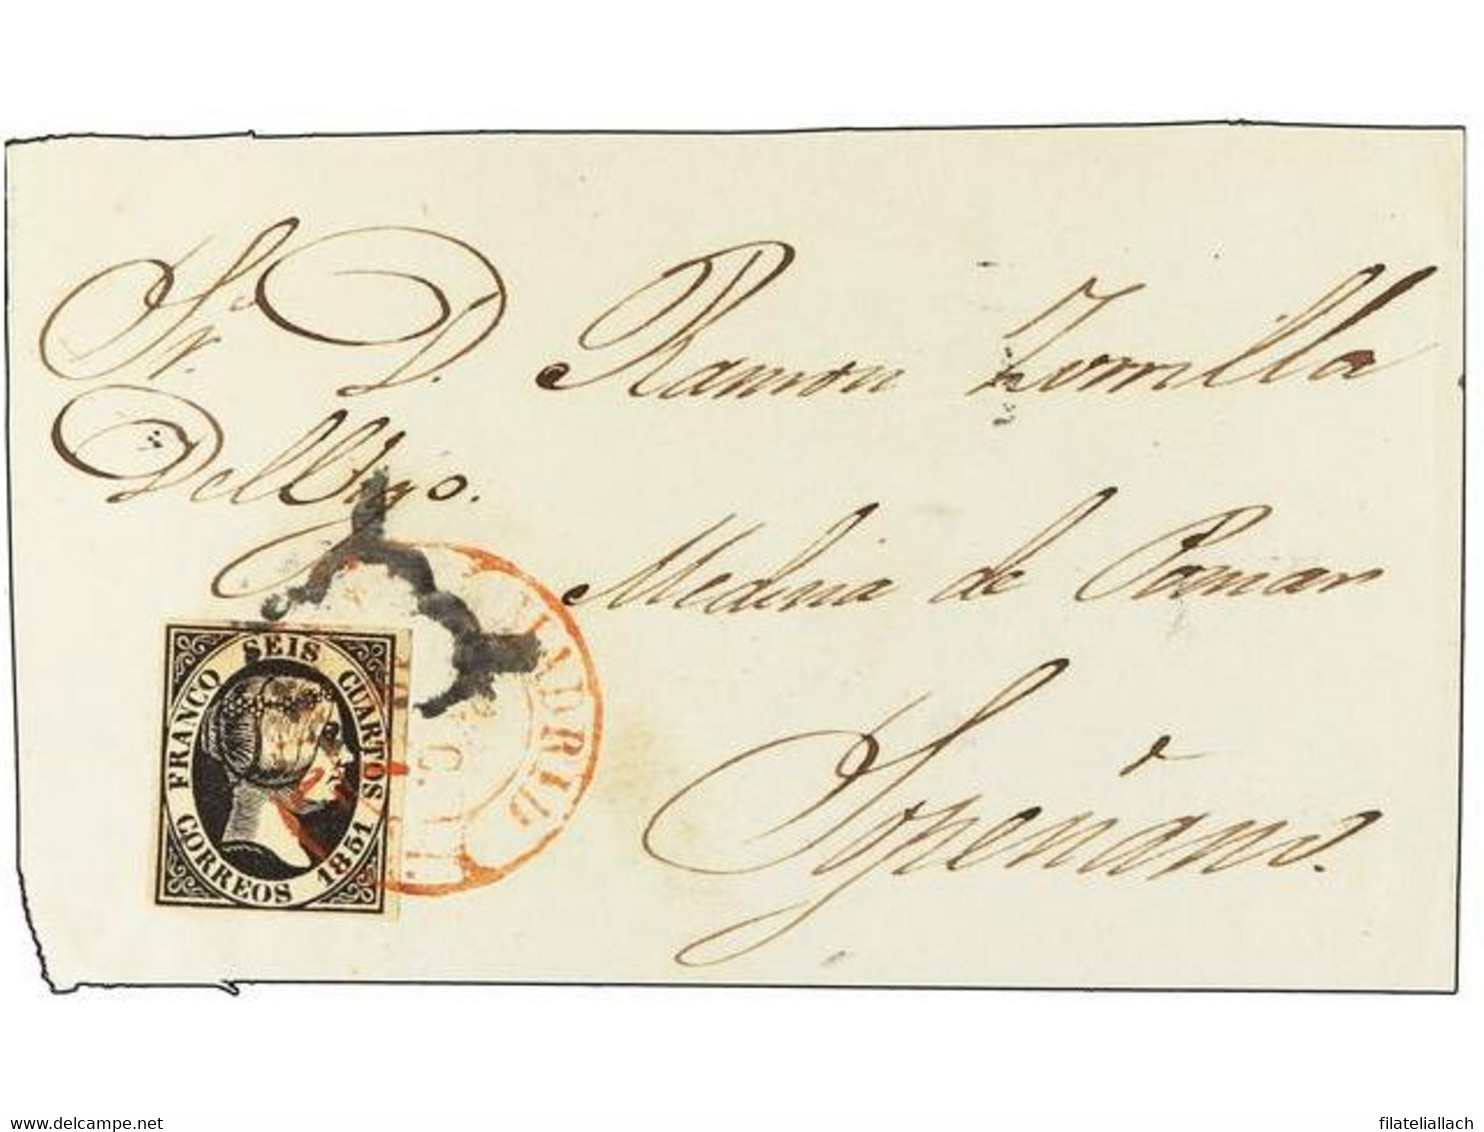 Sr. D. Ramon Zorrilla
Del Vigo.
Medina de Pomar
Sopeñano.
FRANCO SEIS CUARTOS
CORREOS 1851
MADRID
delcampe.net
filateliallach